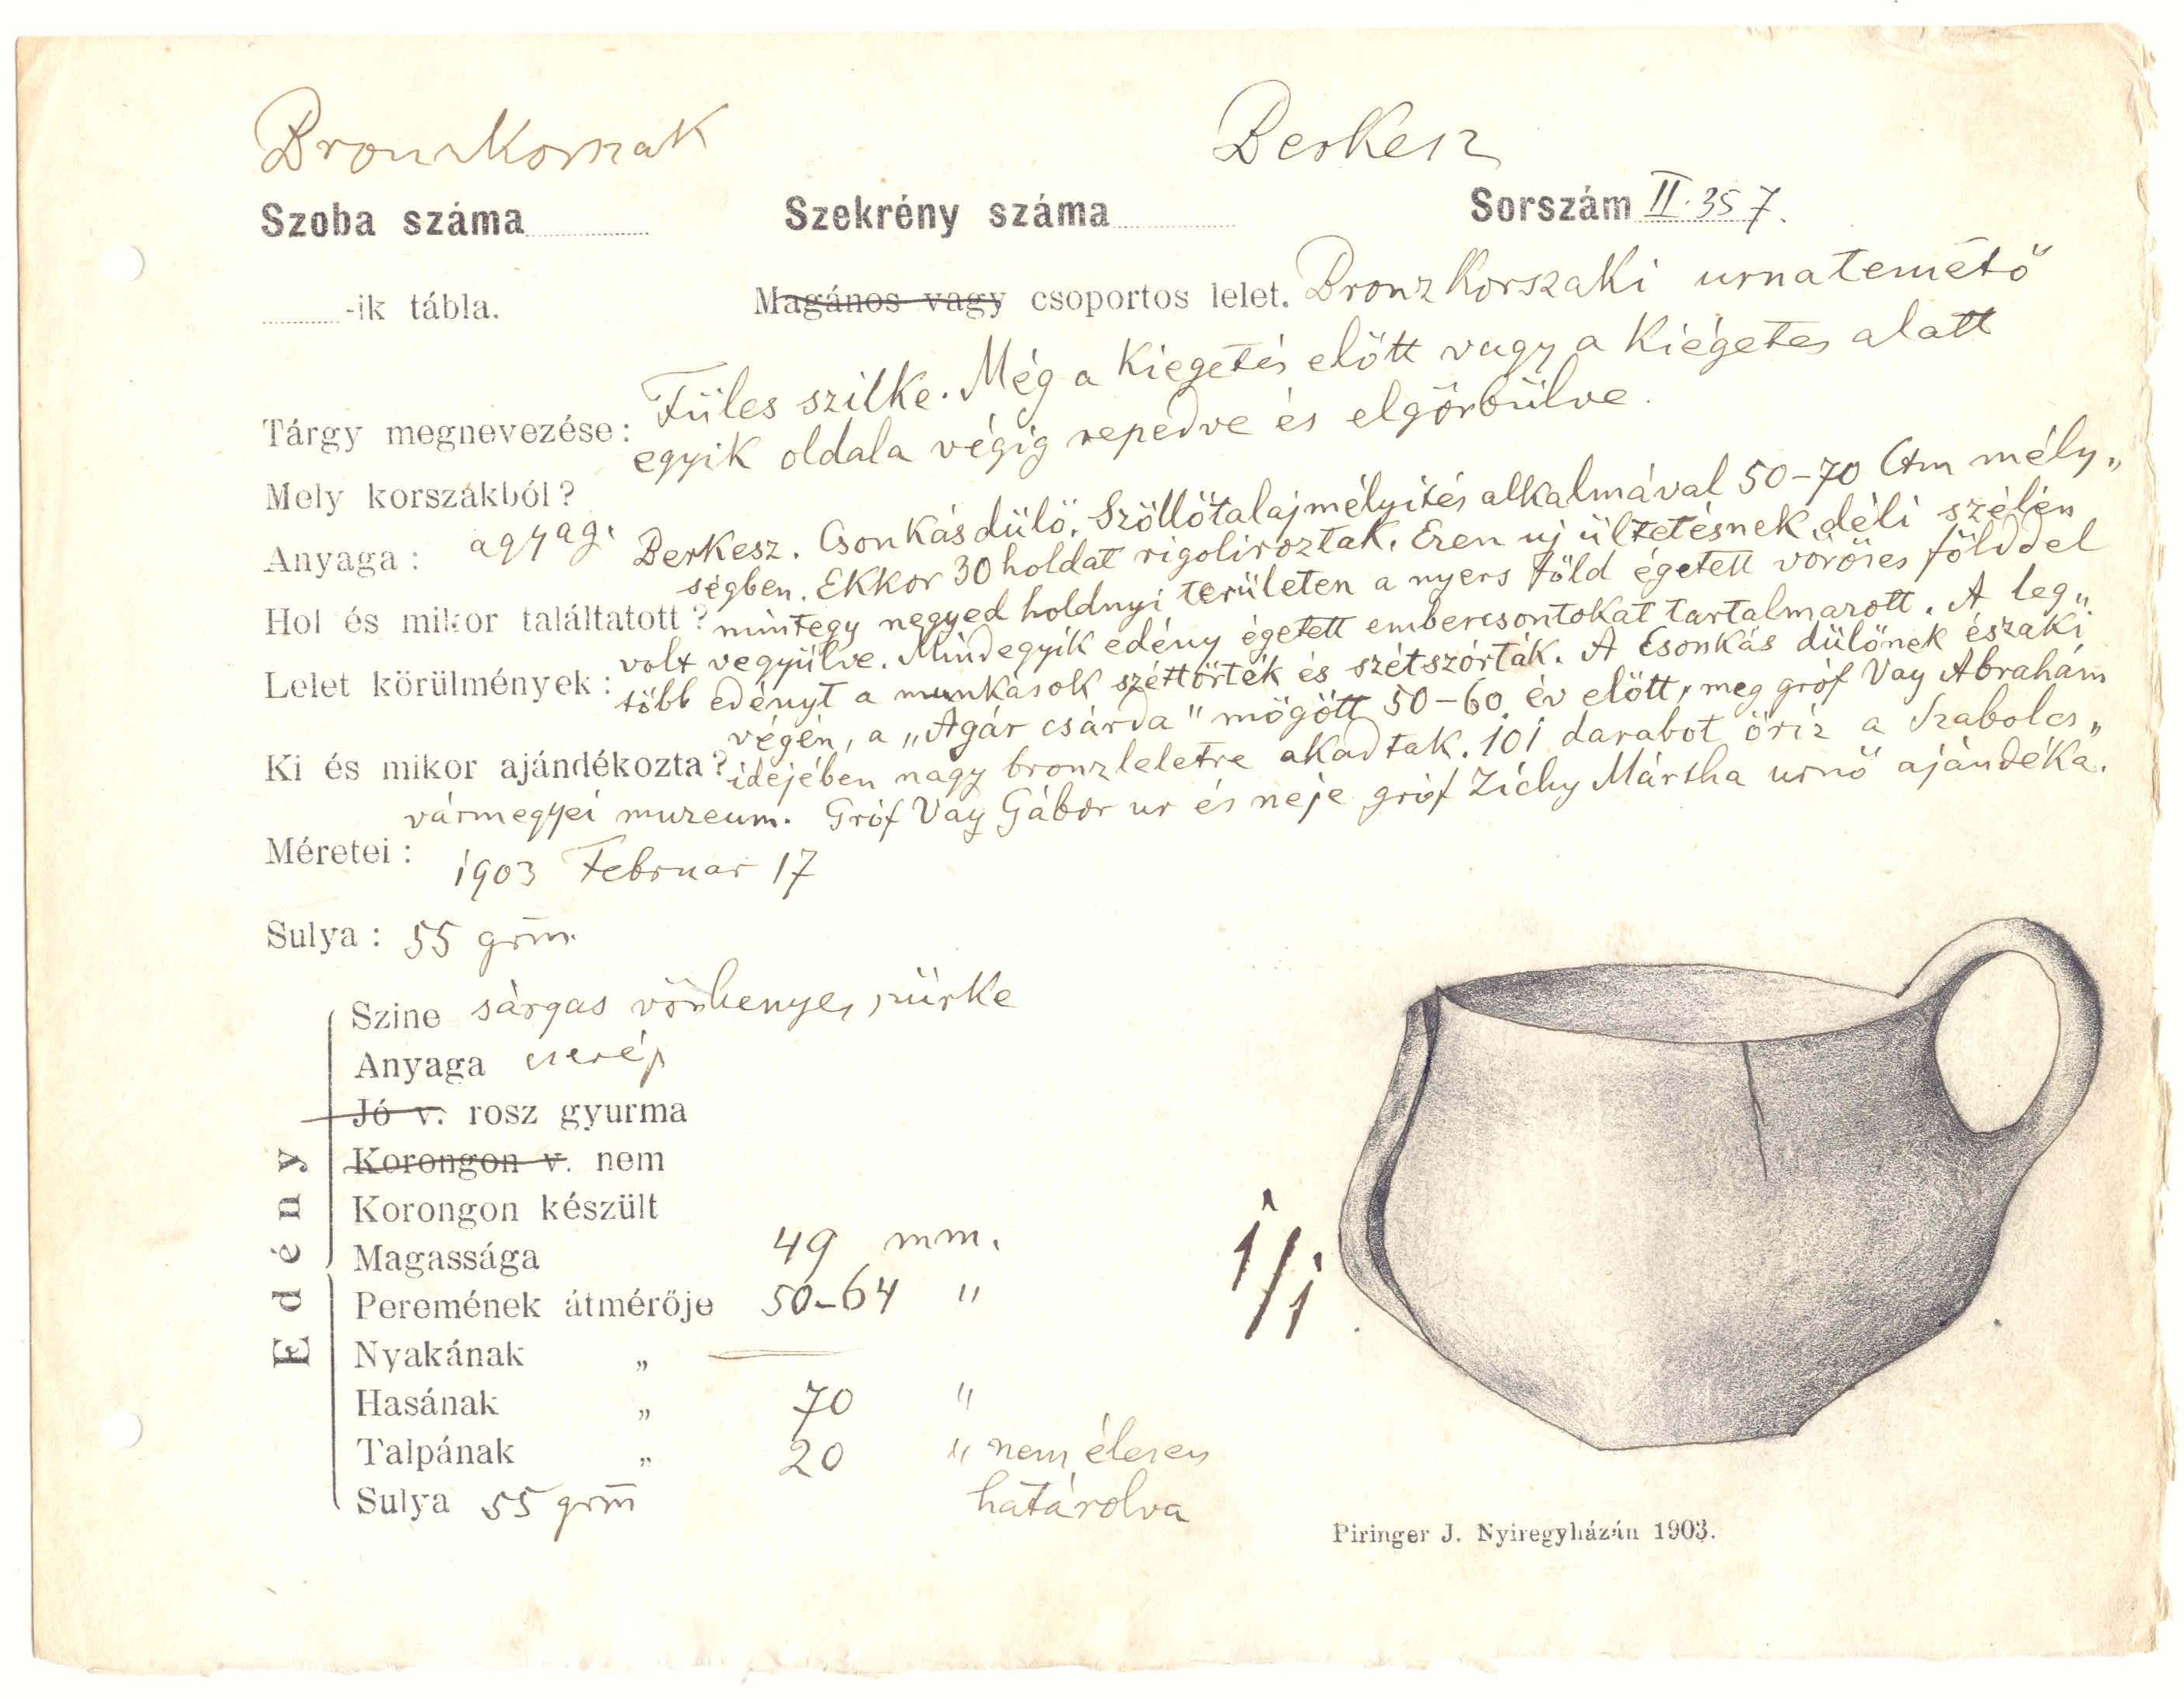 Bronzkorszak Berkesz
Szoba száma Szekrény száma Sorszám II. 357.
-ik tábla. Magános vagy csoportos lelet. Bronzkorszaki urnatemető
Tárgy megnevezése: Füles szilke. Még a kiégetés előtt vagy a kiégetes alatt
egyik oldala végig repedve és elgörbülve.
Mely korszakból?
Anyaga: agyag. Berkesz. Csonkás dülő. Szöllőtalajmélyités alkalmával 50-70 Ctm mély„
ségben. Ekkor 30 holdat rigoliroztak. Ezen uj ültetésnek déli szélén
Hol és mikor találtatott? mintegy negyed holdnyi területen a nyers föld égetett vörös földdel
volt vegyülve. Mindegyik edény égetett embercsontokat tartalmazott. A leg„
Lelet körülmények: több edényt a munkások széttörték és szétszórták. A Csonkás dülőnek északi
végén, a „Agár csárda" mögött 50-60 év előtt, meg gróf Vay Abrahám
Ki és mikor ajándékozta? idejében nagy bronzleletre akadtak. 101 darabot őriz a Szabolcs„
vármegyei muzeum. Gróf Vay Gábor ur és neje gróf Zichy Mártha urnő ajándéka.
Méretei: 1903 Február 17
Sulya: 55 grm
Edény
Szine sárgas vörhenyes, szürke
Anyaga cserép
Jó v. rosz gyurma
Korongon v. nem
Korongon készült
Magassága 49 mm.
Peremének átmérője 50-64 "
Nyakának „ —
Hasának „ 70 "
Talpának „ 20 " nem élesen
határolva
Sulya 55 grm
1/1
Piringer J. Nyiregyházán 1903.